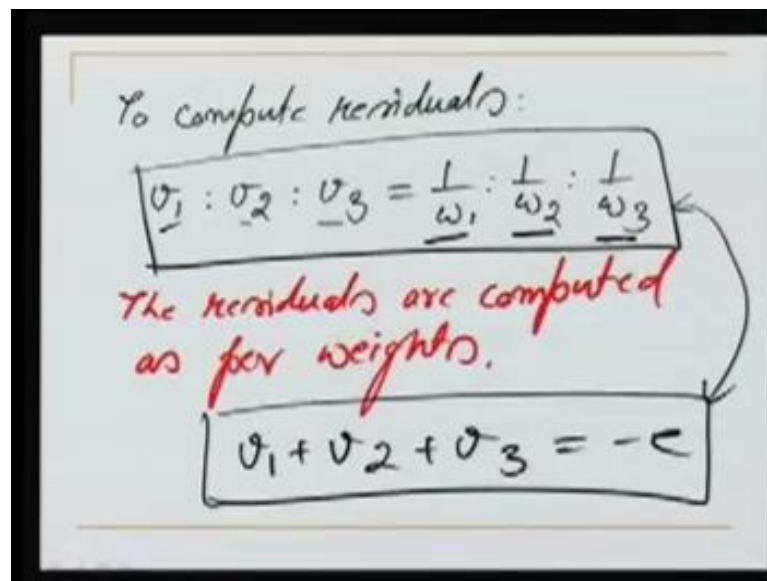 To compute residuals:
v1 : v2 : v3 = 1/ω1 : 1/ω2 : 1/ω3
The residuals are computed
as per weights.
v1 + v2 + v3 = -e